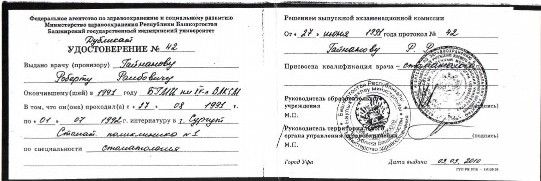 Федеральное агентство по здравоохранению и социальному развитию
Министерство здравоохранения Республики Башкортостан
Башкирский государственный медицинский университет
Дубликат
УДОСТОВЕРЕНИЕ № 42
Выдано врачу (провизору) Гайнанову
Роберту
Окончившему(шей) в 1991 году БГМИ им
В том, что он(она) проходил(а) с 17 08 1991 г.
по « 01 » 07 1992 г. интернатуру в г. Сургут
Стомат. поликлиника № 1
по специальности стоматология
Решением выпускной экзаменационной комиссии
От « 27 » июня 199 года протокол № 42
Гайнанову Р. Р.
Присвоена квалификация врача –
Руководитель
учреждения (подпись)
М.П.
Руководитель
органа управления (подпись)
М.П.
Город Уфа Дата выдачи 03.03.2010